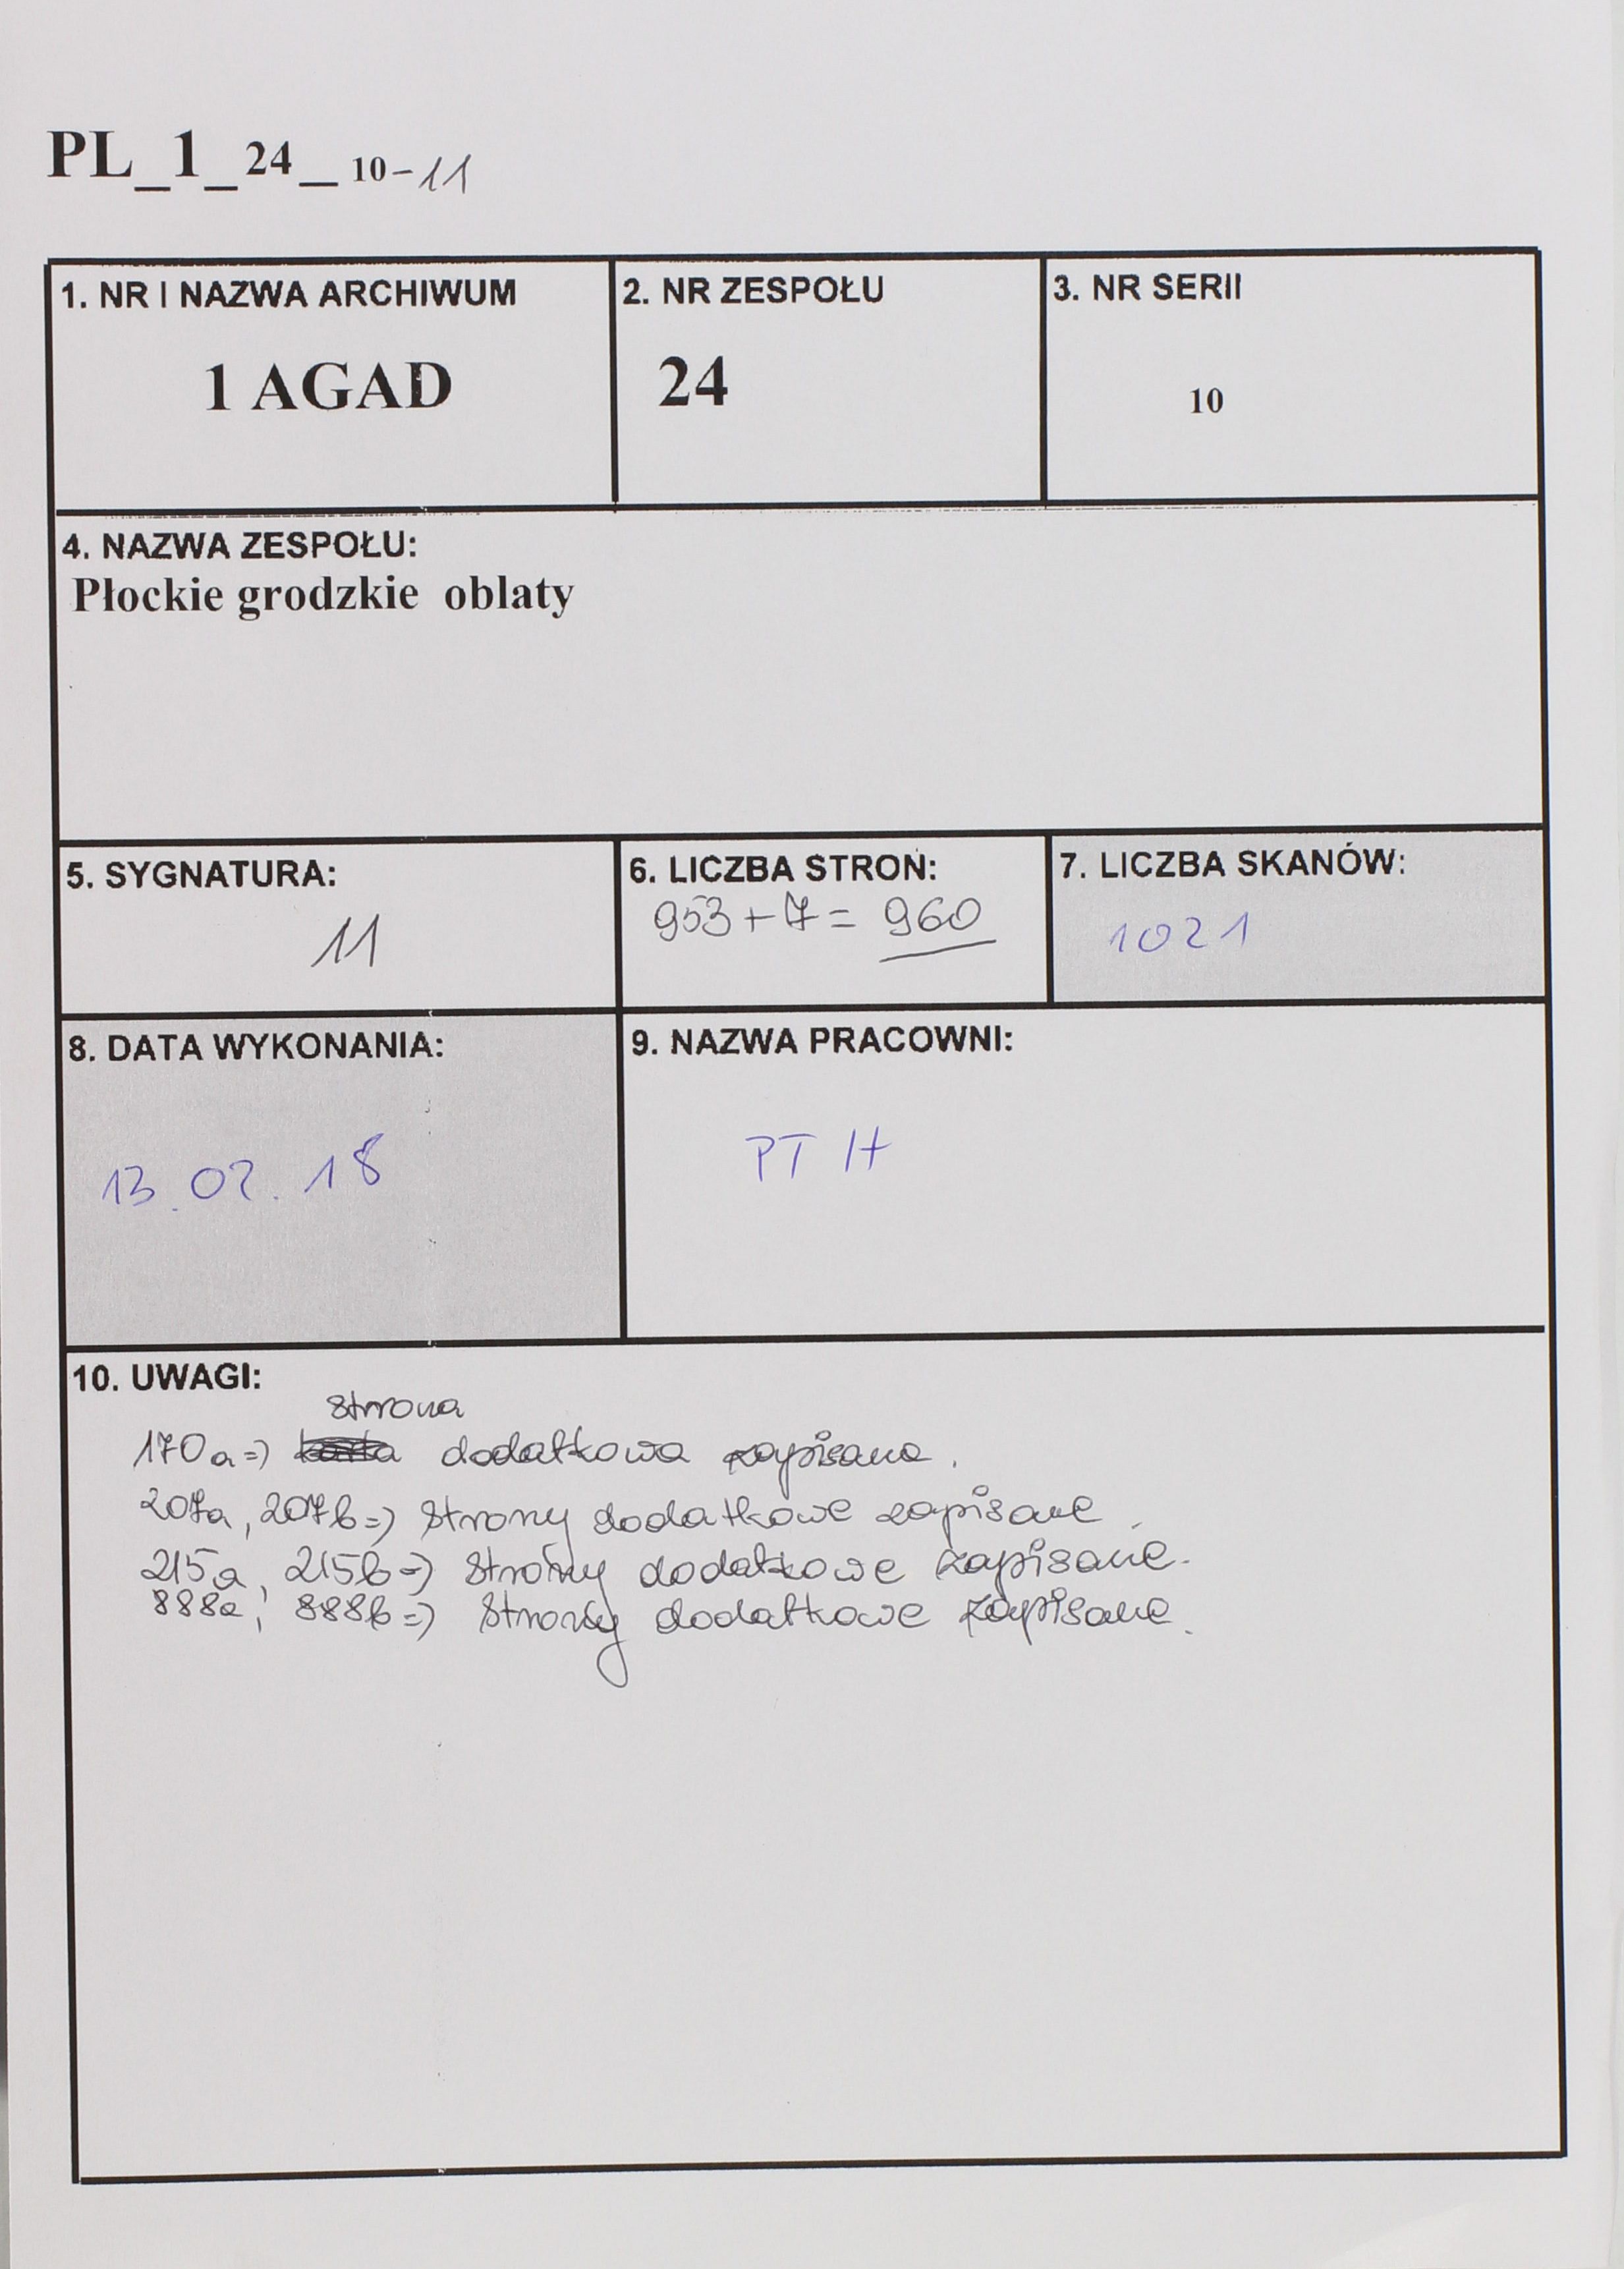 PL_1_24_10-11
1. NR I NAZWA ARCHIWUM
1 AGAD
2. NR ZESPOŁU
24
3. NR SERII
10
4. NAZWA ZESPOŁU:
Płockie grodzkie oblaty
5. SYGNATURA:
11
6. LICZBA STRON:
953+7= 960
7. LICZBA SKANÓW:
1021
8. DATA WYKONANIA:
13.02.18
9. NAZWA PRACOWNI:
PTH
10. UWAGI:
strona
170a=> karta dodatkowa zapisana.
207a, 207b=> strony dodatkowe zapisane.
215a, 215b=> strony dodatkowe zapisane.
888a, 888b=> strony dodatkowe zapisane.